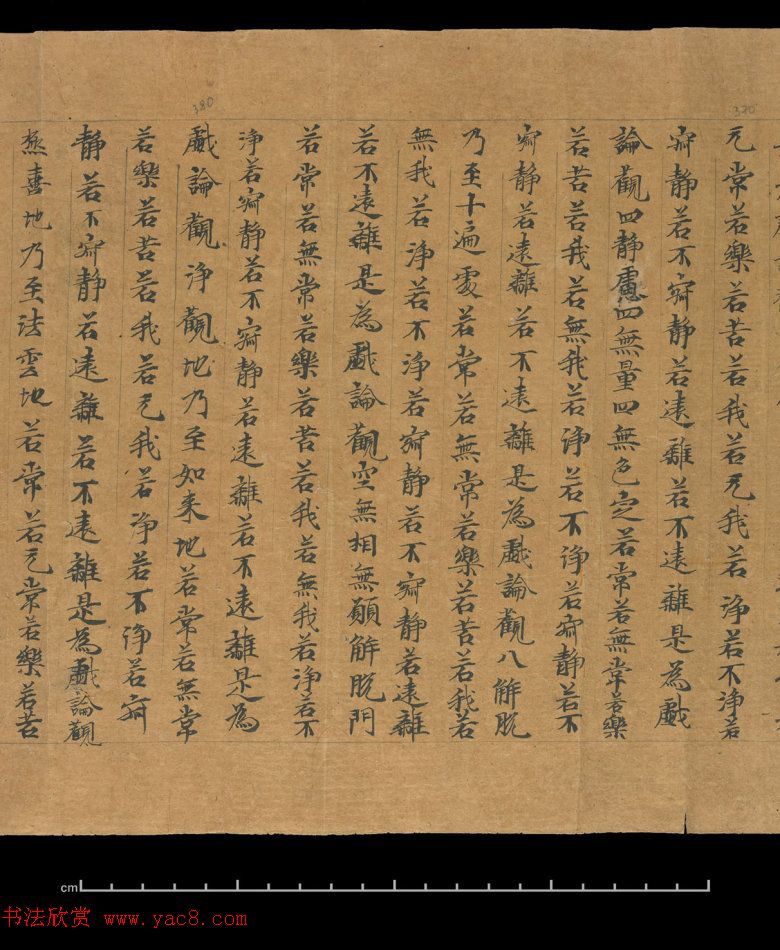 无常若樂若苦若我若无我若淨若不淨若
寂静若不寂静若遠離若不遠離是為戲
論觀四静慮四無量四無色定若常若無常若樂
若苦若我若無我若淨若不淨若寂静若不
寂静若遠離若不遠離是為戲論觀八解脫
乃至十遍處若常若無常若樂若苦若我若
無我若淨若不淨若寂静若不寂静若遠離
若不遠離是為戲論觀空無相無願解脫門
若常若無常若樂若苦若我若無我若淨若不
淨若寂静若不寂静若遠離若不遠離是為
戲論觀淨觀地乃至如来地若常若無常
若樂若苦若我若无我若淨若不淨若寂
静若不寂静若遠離若不遠離是為戲論觀
極喜地乃至法雲地若常若无常若樂若苦
370
380
cm
书法欣赏 www.yac8.com